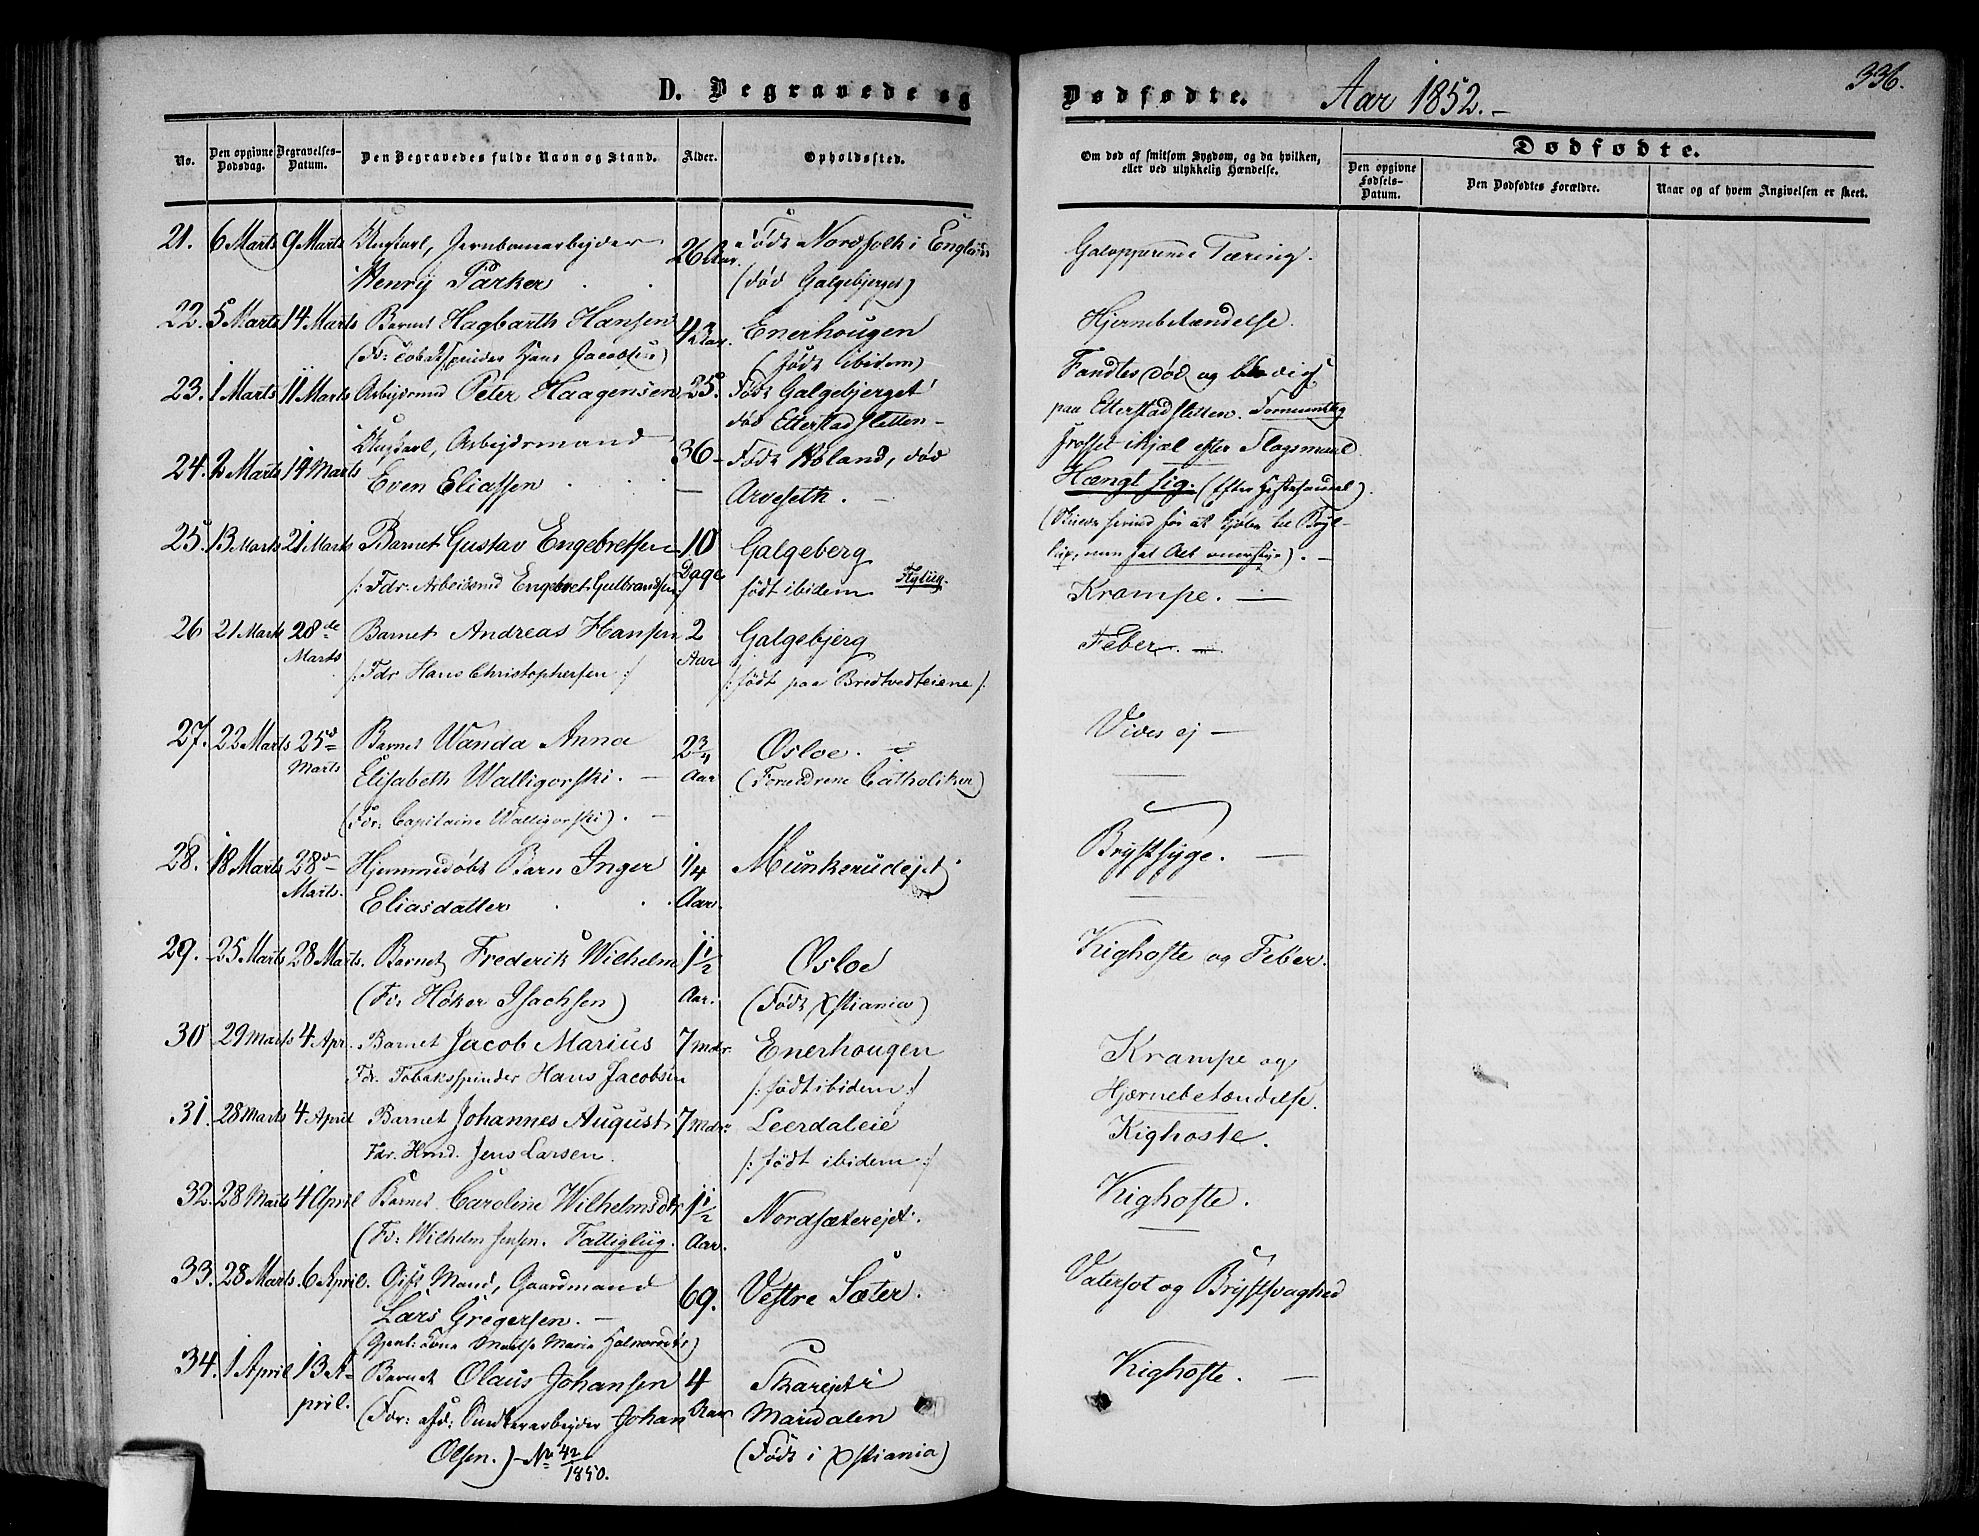 D. Begravede og Dødfødte. Aar 1852.-
336.
No.
Den opgivne Dødsdag.
Begravelses-Datum.
Den Begravedes fulde Navn og Stand.
Alder.
Opholdssted.
Om død af smitsom Sygdom, og da hvilken,
eller ved ulykkelig Hændelse.
Dødfødte.
Den opgivne Fødsels-Datum.
Den Dødfødtes Forældre.
Naar og af hvem Angivelsen er skeet.
21. 6 Marts 9 Marts Ungkarl, Jernbanearbejder 26 Aar. Født Nordfolk i England Galopperende Tæring.
Henry Parker (død Galgebjerget)
22. 5 Marts 14 Marts Barnet Hagbarth Hansen Enerhougen Hjernebetændelse.
(Fdr: Tobakspinder Hans Jacobsen) (født ibidem)
23. 1 Marts 11 Marts Arbejdsmd Peter Haagensen 25. Født Galgebjerget Fandtes død og
død Etterstadsletten- paa Etterstadsletten. Formentlig
frosset ihjæl efter Slagsmaal.
24. 2 Marts 14 Marts Ungkarl, Arbejdsmand 36- død Hængt sig.
Even Eliassen Arveseth.
25. 13 Marts 21 Marts Barnet Gustav Engebretsen 10 Dage Galgeberg Krampe.
/: Fdr. Arbeidsmd Engebret Gulbrandsen :/ født ibidem
26 21 Marts 28de Marts Barnet Andreas Hansen 2 Aar Galgebjerg Feber.
/: Fdr Hans Christophersen :/ /: født paa Bredtvedteiene /:
27. 22 Marts 25d Marts Barnet Wanda Anna 2 3/4 Aar Osloe. Vides ej
Elisabeth Walligorski. (Forældrene Catholiker)
(Fdr: Capitaine Walligorski).
28. 18 Marts 28d Marts. Hjemmedøbt Barn Inger 1/4 Aar. Munkerudejet Brystsyge.
Eliasdatter
29. 25 Marts 28 Marts. Barnet Frederik Wilhelm 1 1/2 Aar. Osloe Kighoste og Feber.
(Fdr Høker Isachsen) (Født Xstiania)
30 29 Marts 4 Apr. Barnet Jacob Marius 7 Mdr. Enerhougen Krampe og
Fdr. Tobaksspinder Hans Jacobsen /: født ibidem :/ Hjærnebetændelse.
31. 28 Marts 4 April Barnet Johannes August 7 Mdr. Leerdaleie Kighoste.
Fdr. Hmd. Jens Larsen. /: født ibidem :/
32. 28 Marts 4 April Barnet Caroline Wilhelmsdtr 1 1/2 Aar. Nordsæterejet. Kighoste.
(Fdr: Wilhelm Jensen. Fattiglig.
33. 28 Marts. 6 April. Gift Mand, Gaardmand 69. Vestre Sæter. Vatersot og Brystsvaghed
Lars Gregersen.
34. 1 April 13 April. Barnet Olaus Johansen 4 Aar Skarejet i Kighoste.
(Fdr: afd: Johan Maridalen
Olsen.) - No 42/1850. (Født i Xstiania)